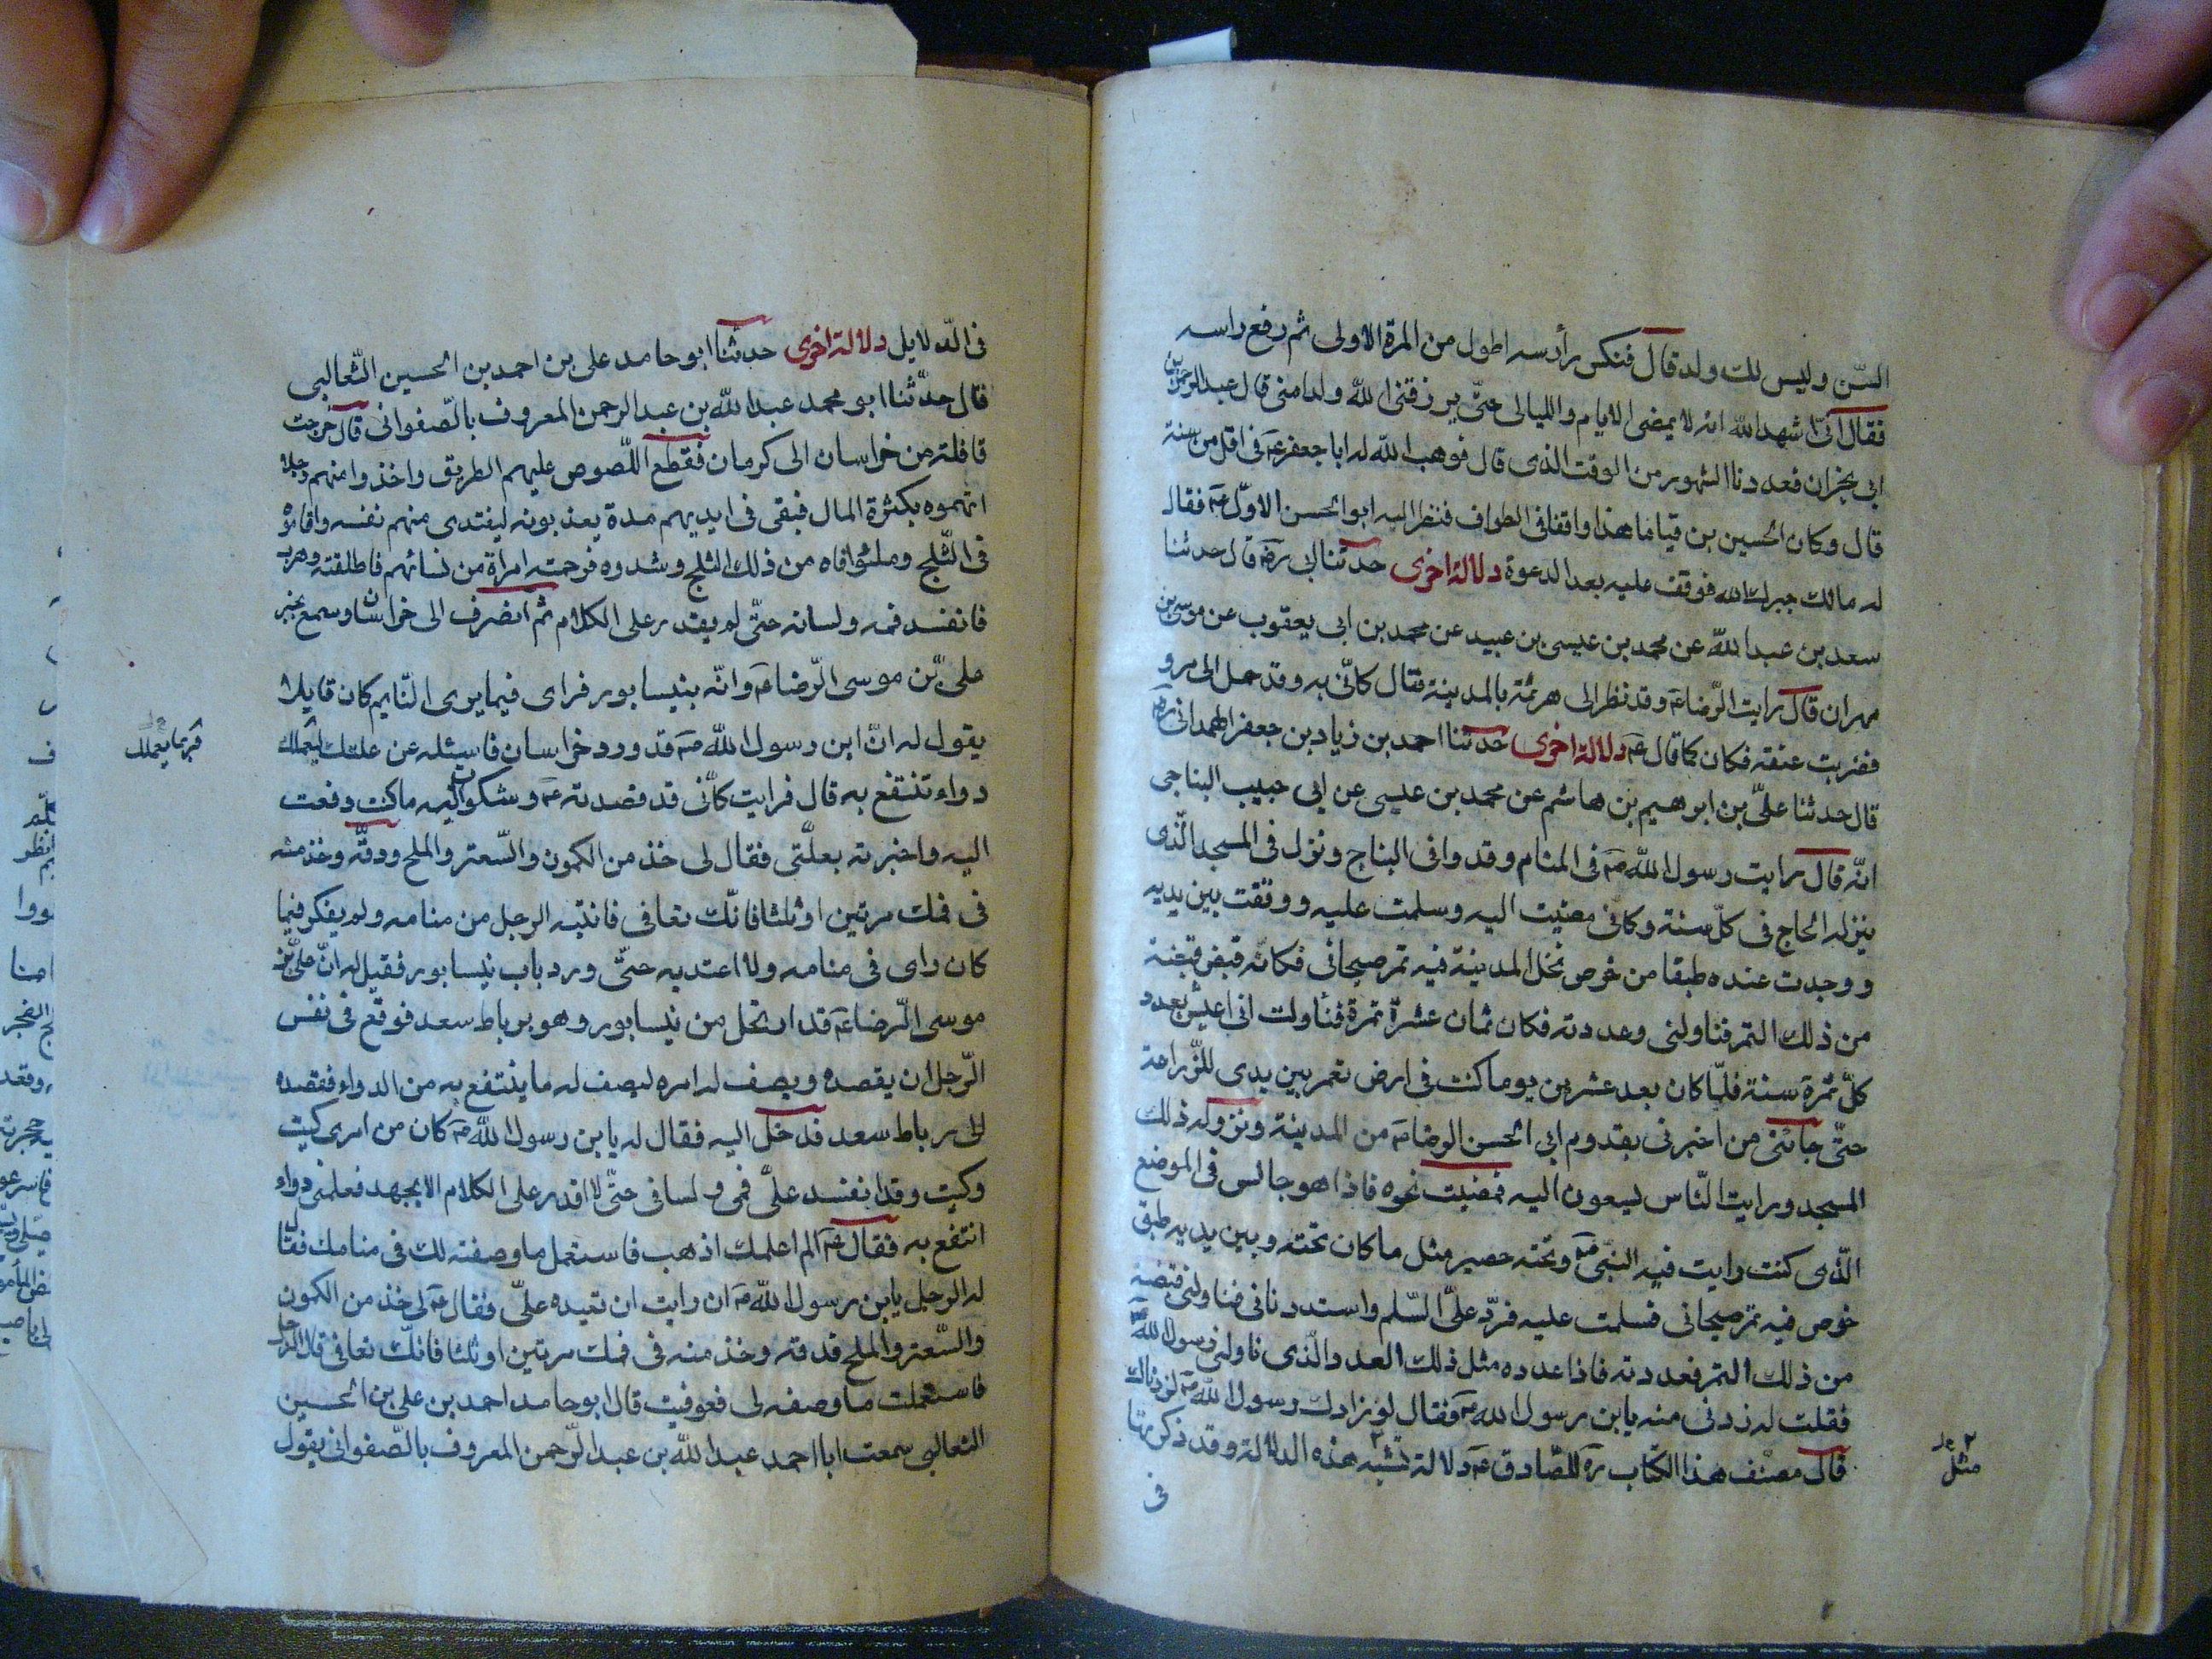 السّن وليس لك ولد قال فنكس رأسه اطول من المرة الاولى ثم رفع راسه
فقال انّى اشهد الله انه لا يمضى الايام والليالى حتّى يرزقنى الله ولدا منى قال عبد الرحمن بن
ابى نجران فعددنا الشهور من الوقت الذى قال فوهب الله له ابا جعفر ع فى اقل من سنة
قال وكان الحسين بن قياما هذا واقفا فى الطواف فنظر اليه ابو الحسن الاوّل ع فقال
له مالك حيرك الله فوقف عليه بعد الدعوة دلالة اخرى حدثنا ابى ره قال حدثنا
سعد بن عبد الله عن محمد بن عيسى بن عبيد عن محمد بن ابى يعقوب عن موسى بن
مهران قال رايت الرّضا ع وقد نظر الى هرثمة بالمدينة فقال كانّى به وقد حمل الى مرو
فضربت عنقه فكان كما قال ع دلالة اخرى حدثنا احمد بن زياد بن جعفر الهمدانى ره
قال حدثنا علىّ بن ابرهيم بن هاشم عن محمد بن عيسى عن ابى حبيب البناجى
انّه قال رايت رسول الله ص فى المنام وقد وافى البناج ونزل فى المسجد الّذى
ينزله الحاج فى كلّ سنة وكانّى مضيت اليه وسلمت عليه ووقفت بين يديه
ووجدت عنده طبقا من خوص نخل المدينة فيه تمر صيحانى فكانّه قبض قبضة
من ذلك التمر فناولنى وعددته فكان ثمان عشرة تمرة فتأولت انى اعيش بعدد
كلّ تمرة سنة فلمّا كان بعد عشرين يوما كنت فى ارض تعمر بين يدى للزّراعة
حتّى جائنى من اخبرنى بقدوم ابى الحسن الرضا ع من المدينة ونزوله ذلك
المسجد ورايت النّاس يسعون اليه فمضيت نحوه فاذا هو جالس فى الموضع
الّذى كنت رايت فيه النبى ص وتحته حصير مثل ما كان تحته وبين يديه طبق
خوص فيه تمر صيحانى فسلمت عليه فردّ علىّ السّلم واستدنانى فناولنى قبضة
من ذلك التمر فعددته فاذا عدده مثل ذلك العدد الّذى ناولنى رسول الله ص
فقلت له زدنى منه يابن رسول الله ص فقال لو زادك رسول الله ص لزدناك
قال مصنف هذا الكتاب ره للصّادق ع دلالة تشبه هذه الدلالة وقد ذكرتها
فى
مثل
فى الدّلايل دلالة اخرى حدثنا ابو حامد على بن احمد بن الحسين الثّعالبى
قال حدّثنا ابو محمد عبد الله بن عبد الرحمن المعروف بالصّفوانى قال خرجت
قافلة من خراسان الى كرمان فقطع اللّصوص عليهم الطريق واخذوا منهم رجلا
اتهموه بكثرة المال فبقى فى ايديهم مدة يعذبونه ليفتدى منهم نفسه واقاموه
فى الثّلج وملئوا فاه من ذلك الثلج وشدوه فرحمته امراة من نسائهم فاطلقته وهرب
فانفسد فمه ولسانه حتّى لم يقدر على الكلام ثم انصرف الى خراسان وسمع بخبر
علىّ بن موسى الرّضا ع وانّه بنيسابور فراى فيما يرى النّايم كان قايلا
يقول له انّ ابن رسول الله ص قد ورد خراسان فاسئله عن علتك ليعلمك
دواء تنتفع به قال فرايت كانّى قد قصدته ع وشكوت اليه ما كنت دفعت
اليه واخبرته بعلّتى فقال لى خذ من الكمون والسّعتر والملح ودقّه وخذ منه
فى فمك مرتين او ثلثا فانّك تعافى فانتبه الرجل من منامه ولم يفكر فيما
كان راى فى منامه ولا اعتد به حتّى ورد باب نيسابور فقيل له انّ علىّ بن
موسى الرّضا ع قد ارتحل من نيسابور وهو برباط سعد فوقع فى نفس
الرّجل ان يقصده ويصف له امره ليصف له ما ينتفع به من الدواء فقصده
الى رباط سعد فدخل اليه فقال له يابن رسول الله ص كان من امرى كيت
وكيت وقد انفسد علىّ فمى ولسانى حتّى لا اقدر على الكلام الا بجهد فعلمنى دواء
انتفع به فقال ع الم اعلمك اذهب فاستعمل ما وصفته لك فى منامك فقال
له الرجل يابن رسول الله ص ان رايت ان تعيده علىّ فقال ع لى خذ من الكمون
والسّعتر والملح فدقه وخذ منه فى فمك مرتين او ثلثا فانّك تعافى قال الرّجل
فاستعملت ما وصفه لى فعوفيت قال ابو حامد احمد بن على بن الحسين
الثعالبى سمعت ابا احمد عبد الله بن عبد الرّحمن المعروف بالصّفوانى يقول